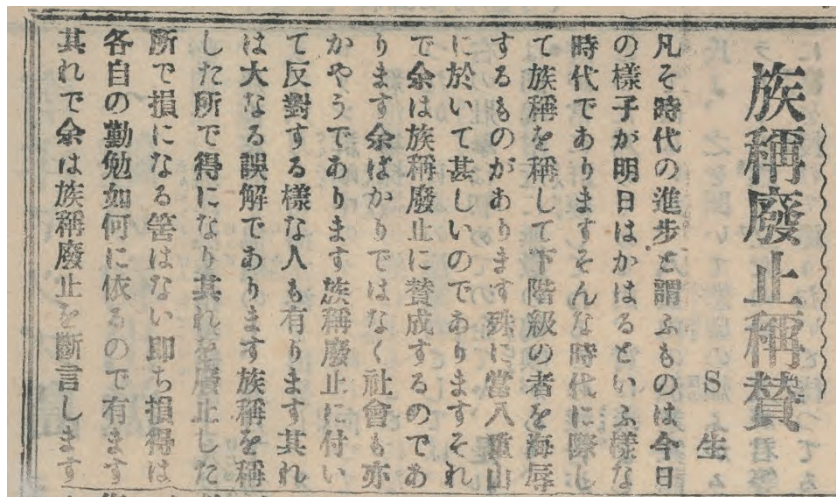 族稱廢止稱賛
S生
凡そ時代の進步と謂ふものは今日
の樣子が明日はかはるといふ樣な
時代でありますそんな時代に際し
て族稱を稱して下階級の者を侮辱
するものがあります殊に當八重山
に於いて甚しいのでありますそれ
で余は族稱廢止に賛成するのであ
ります余ばかりではなく社會も亦
かやうであります族稱廢止に付い
て反對する樣な人も有ります其れ
は大なる誤解であります族稱を稱
した所で得になり其れを廢止した
所で損になる筈はない即ち損得は
各自の勤勉如何に依るので有ます
其れで余は族稱廢止を斷言します